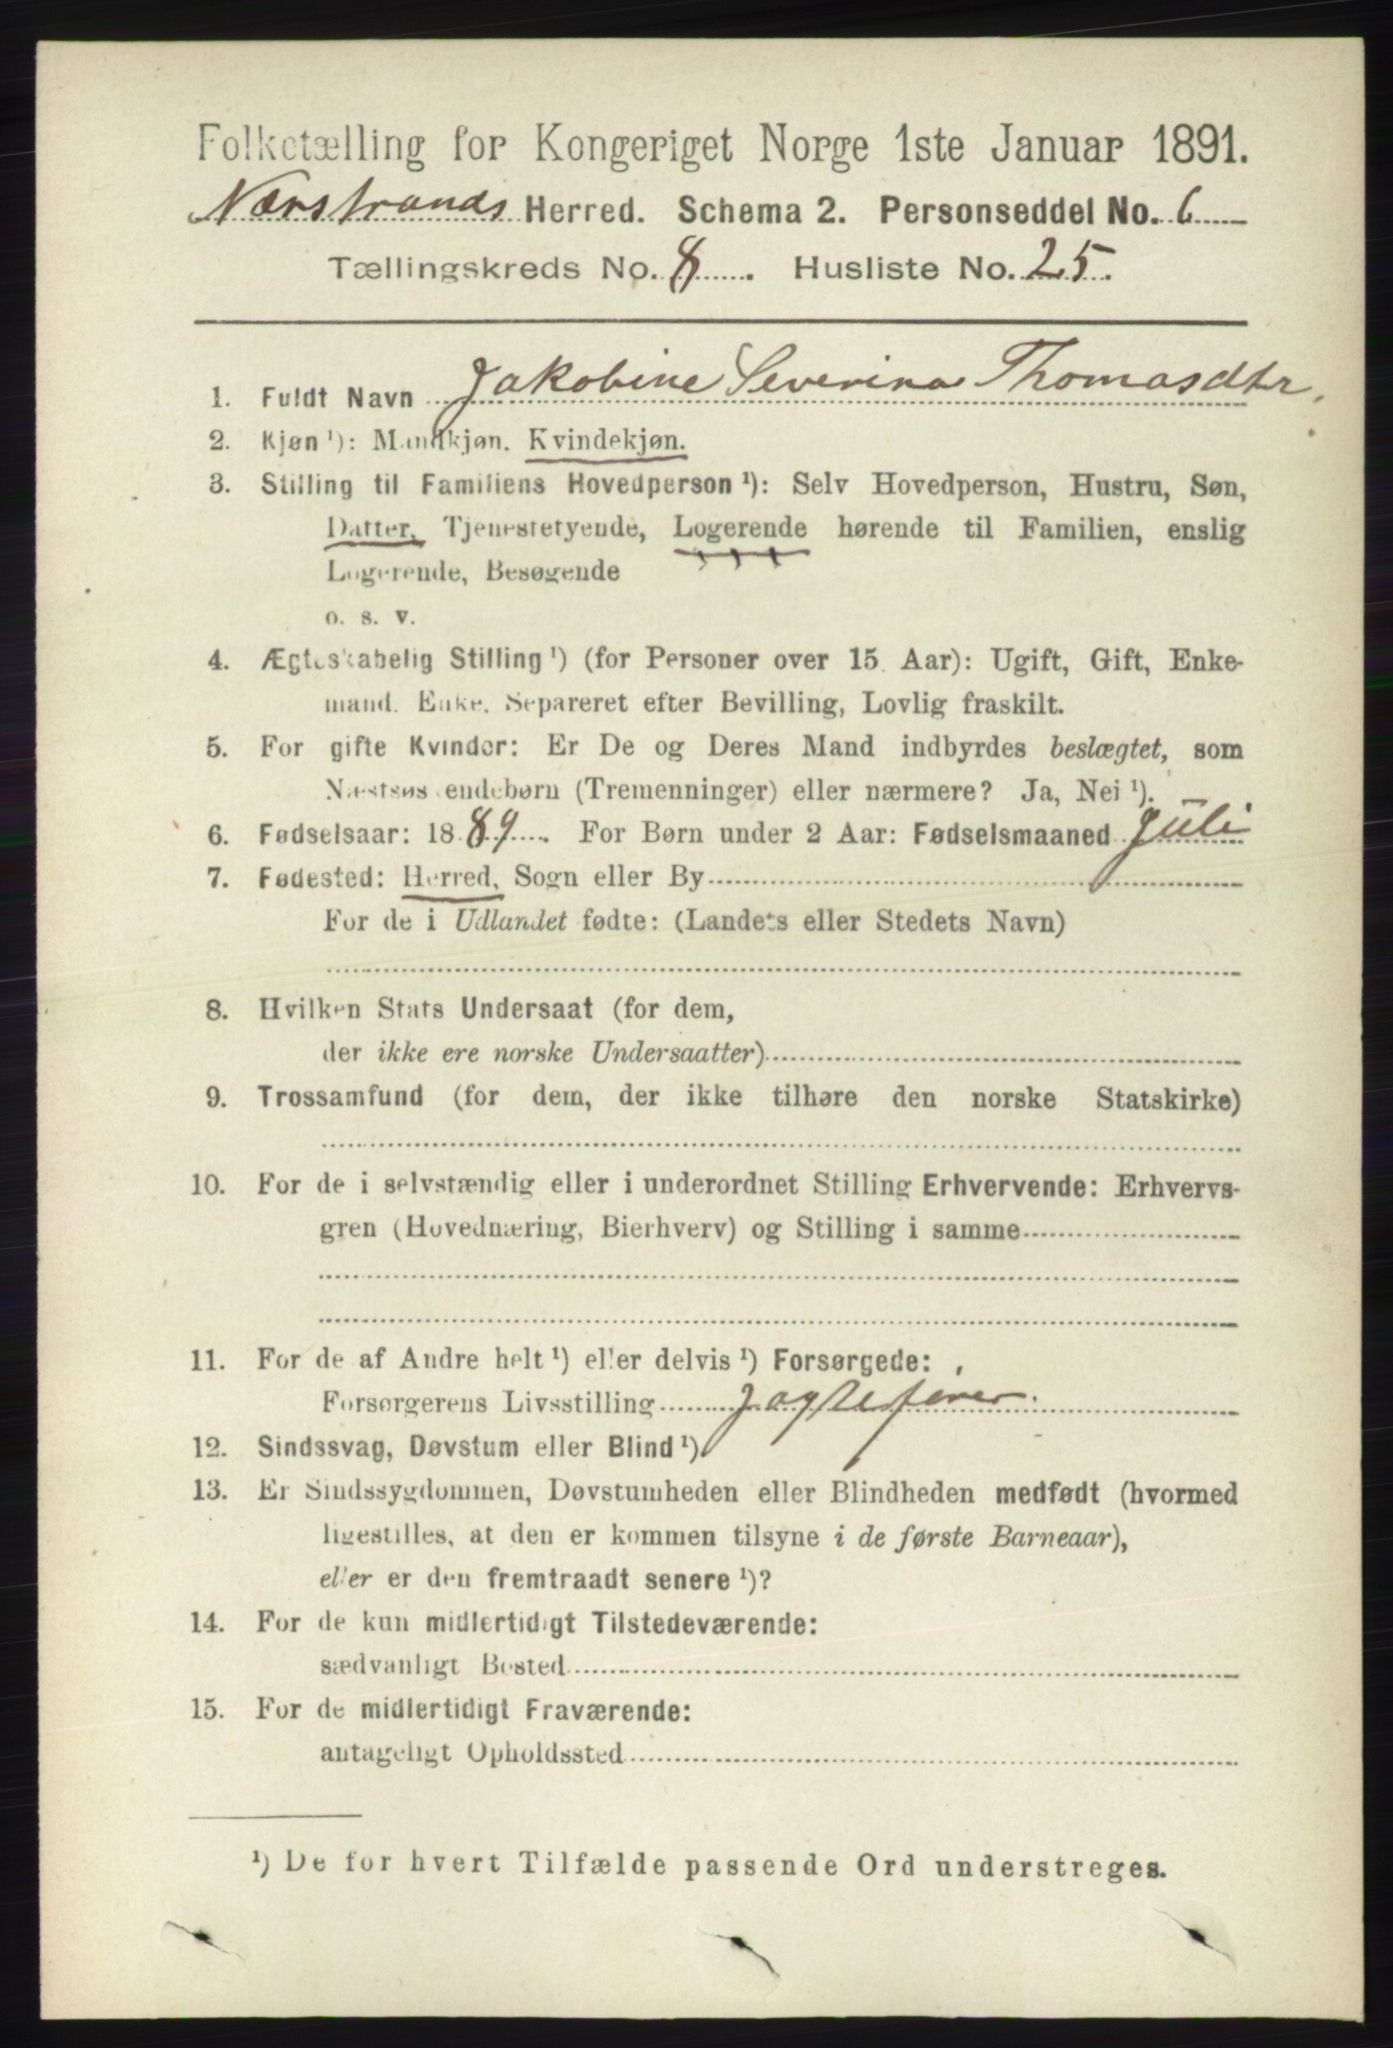 Folketælling for Kongeriget Norge 1ste Januar 1891.
Nærstrands Herred. Schema 2. Personseddel No. 6
Tællingskreds No. 8. Husliste No. 25.
1. Fuldt Navn Jakobine Severina Thomasdtr.
2. Kjøn ¹): Mandkjøn. Kvindekjøn.
3. Stilling til Familiens Hovedperson ¹): Selv Hovedperson, Hustru, Søn,
Datter, Tjenestetyende, Logerende hørende til Familien, enslig
Logerende, Besøgende
o. s. v.
4. Ægteskabelig Stilling ¹) (for Personer over 15 Aar): Ugift, Gift, Enke-
mand, Enke, Separeret efter Bevilling, Lovlig fraskilt.
5. For gifte Kvinder: Er De og Deres Mand indbyrdes beslægtet, som
Næstsøskendebørn (Tremenninger) eller nærmere? Ja, Nei ¹).
6. Fødselsaar: 1889. For Børn under 2 Aar: Fødselsmaaned Juli
7. Fødested: Herred, Sogn eller By
For de i Udlandet fødte: (Landets eller Stedets Navn)
8. Hvilken Stats Undersaat (for dem,
der ikke ere norske Undersaatter)
9. Trossamfund (for dem, der ikke tilhøre den norske Statskirke)
10. For de i selvstændig eller i underordnet Stilling Erhvervende: Erhvervs-
gren (Hovednæring, Bierhverv) og Stilling i samme
11. For de af Andre helt ¹) eller delvis ¹) Forsørgede:
Forsørgerens Livsstilling Jagtefører.
12. Sindssvag, Døvstum eller Blind ¹).
13. Er Sindssygdommen, Døvstumheden eller Blindheden medfødt (hvormed
ligestilles, at den er kommen tilsyne i de første Barneaar),
eller er den fremtraadt senere ¹)?
14. For de kun midlertidigt Tilstedeværende:
sædvanligt Bosted
15. For de midlertidigt Fraværende:
antageligt Opholdssted
¹) De for hvert Tilfælde passende Ord understreges.